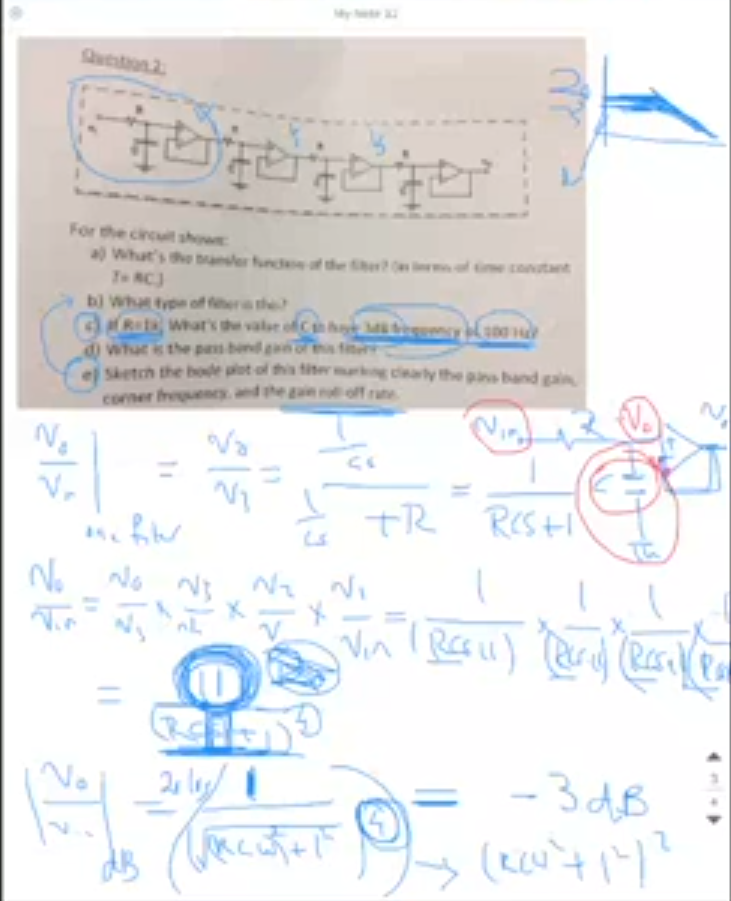 My Note 32
Question 2:
For the circuit shown:
a) What's the transfer function of the filter? (in terms of time constant
T= RC.)
b) What type of filter is this?
c) If R=1k, What's the value of C to have 3dB frequency of 100 Hz?
d) What is the pass band gain of this filter?
e) Sketch the bode plot of this filter marking clearly the pass band gain,
corner frequency, and the gain roll-off rate.
Vin R Vo
Vo/Vin | one filter = V3/V2 = (1/CS)/(1/CS + R) = 1/(RCS+1)
C
Vo/Vin = Vo/V3 × V3/V2 × V2/V × V1/Vin = 1/(RCS+1) × 1/ × 1/ ×
= 1/(RCS+1)^4
|Vo/V| dB = 20 log (1/√(RCW)²+1²)^4 = -3 dB
→ (RCW²+1²)²